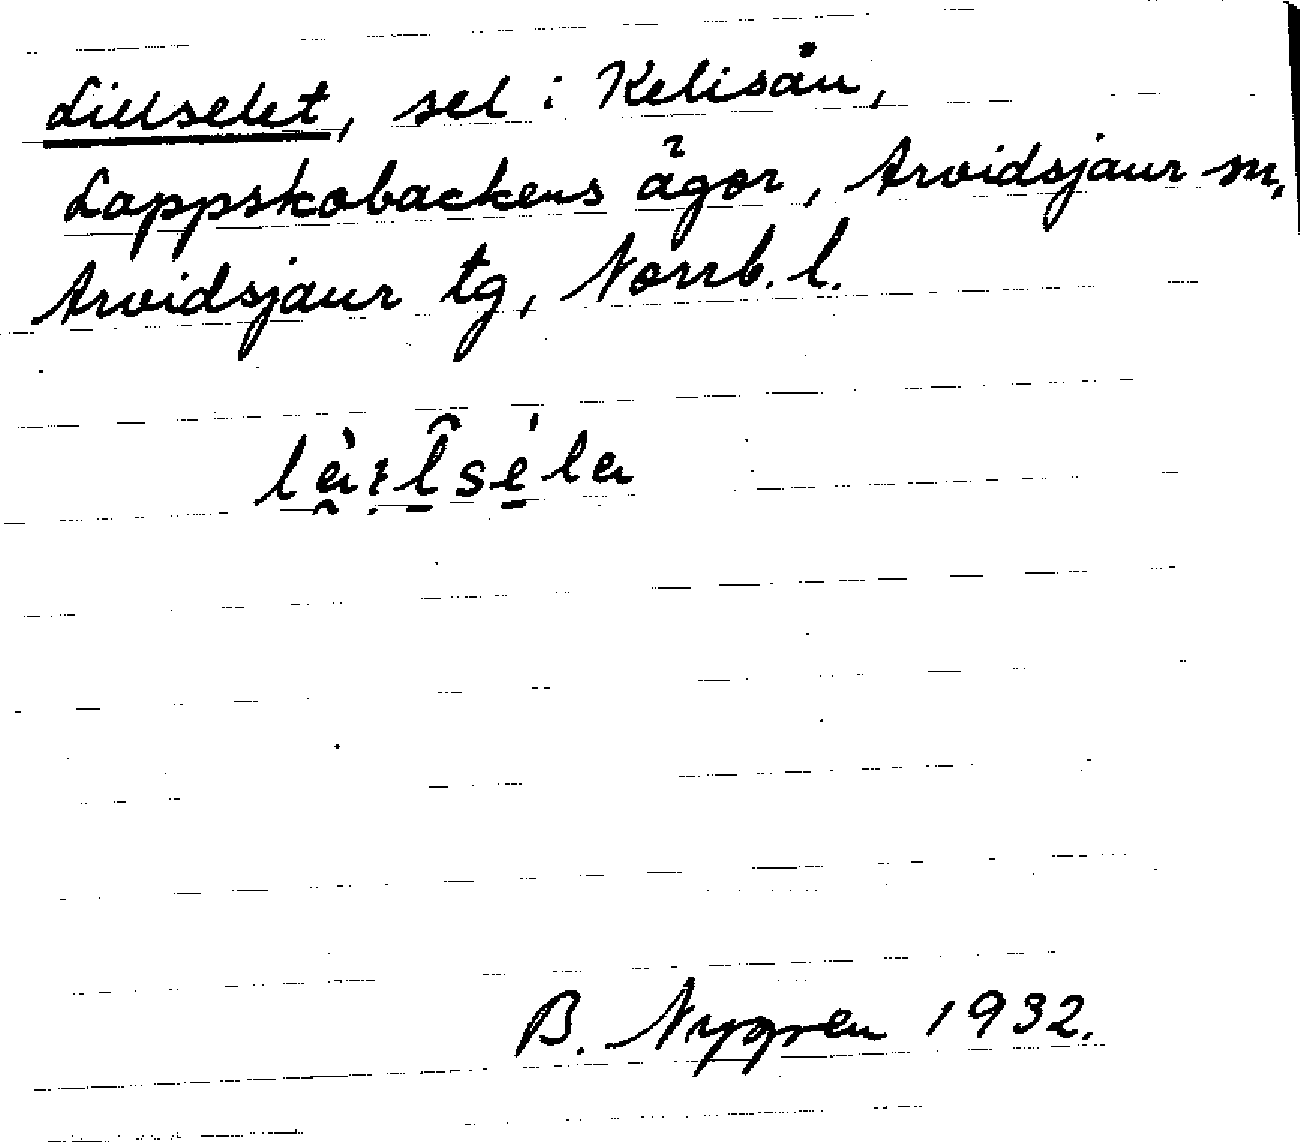 Lillselet, sel i Kelisån,
Lappskobackens ägor, Arvidsjaur sn,
Arvidsjaur tg, Norrb. l.
B. Nygren 1932.